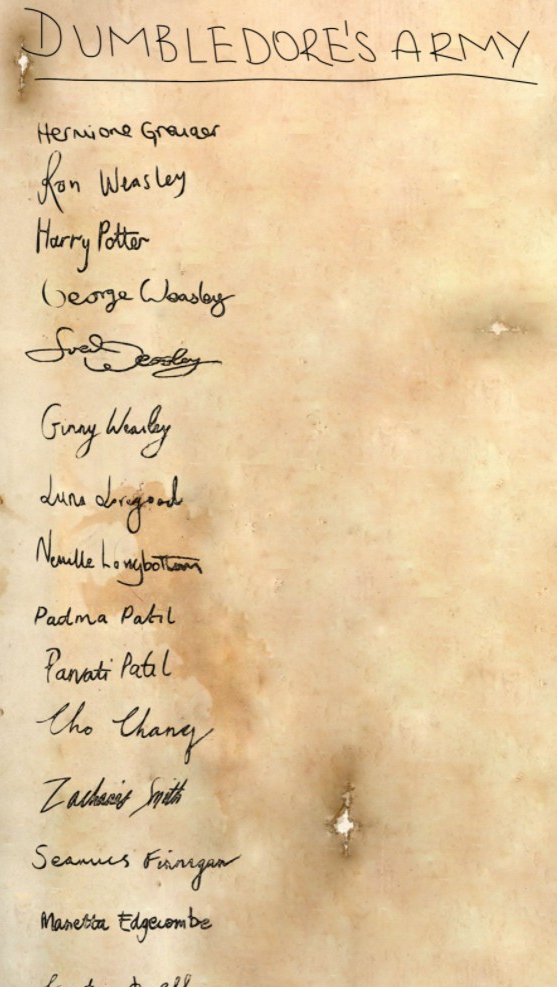 DUMBLEDORE'S ARMY
Hermione Granger
Ron Weasley
Harry Potter
George Weasley
Fred Weasley
Ginny Weasley
Luna Lovegood
Neville Longbottom
Padma Patil
Parvati Patil
Cho Chang
Zacharias Smith
Seamus Finnegan
Marietta Edgecombe